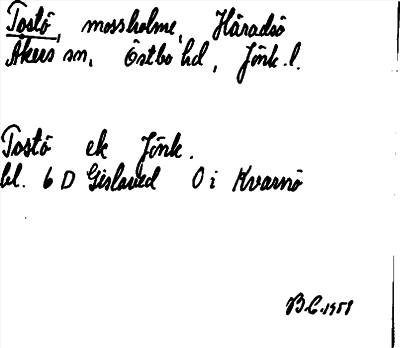 Tostö, mossholme, Häradsö
Åkers sn, Östbo hd, Jönk. l.
Tostö ek Jönk.
bl. 6 D Gislaved O i Kvarnö
B.C. 1958